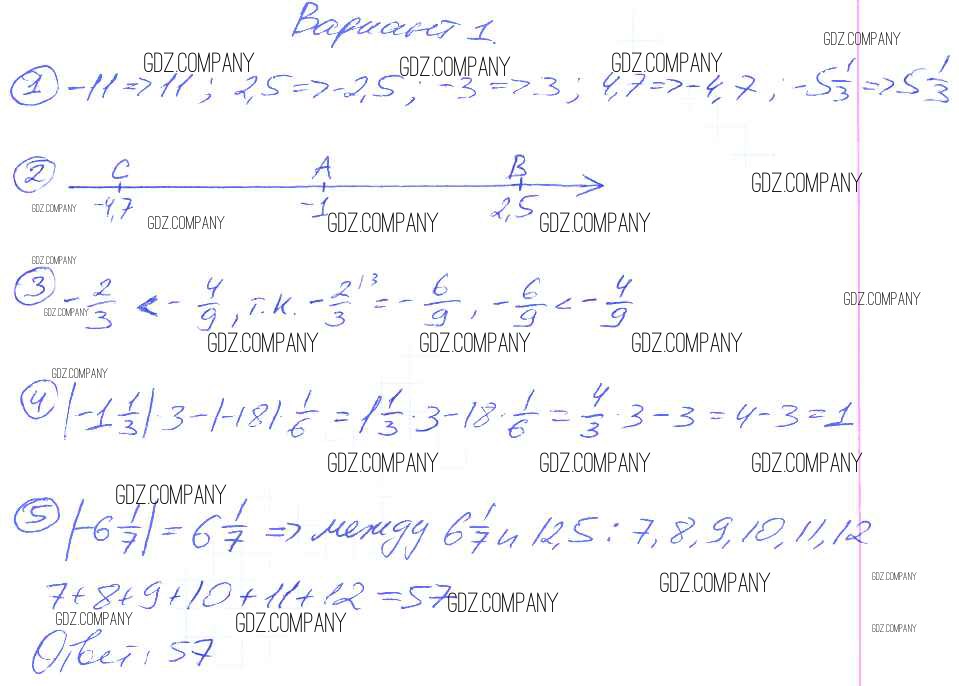 Вариант 1.
GDZ.COMPANY
GDZ.COMPANY GDZ.COMPANY GDZ.COMPANY
① -11 => 11 ; 2,5 => -2,5 ; -3 => 3 ; 4,7 => -4,7 ; -5 1/3 => 5 1/3
② C A B
GDZ.COMPANY
-4,7 -1 2,5
GDZ.COMPANY GDZ.COMPANY GDZ.COMPANY GDZ.COMPANY
GDZ.COMPANY
③ - 2/3 < - 4/9, т.к. - 2/3 |3 = - 6/9, - 6/9 < - 4/9
GDZ.COMPANY GDZ.COMPANY
GDZ.COMPANY GDZ.COMPANY GDZ.COMPANY
GDZ.COMPANY
④ |-1 1/3| · 3 - |-18| · 1/6 = 1 1/3 · 3 - 18 · 1/6 = 4/3 · 3 - 3 = 4 - 3 = 1
GDZ.COMPANY GDZ.COMPANY GDZ.COMPANY
GDZ.COMPANY
⑤ |-6 1/7| = 6 1/7 => между 6 1/7 и 12,5 : 7, 8, 9, 10, 11, 12
GDZ.COMPANY GDZ.COMPANY
7+8+9+10+11+12 = 57
GDZ.COMPANY
GDZ.COMPANY GDZ.COMPANY GDZ.COMPANY
Ответ: 57